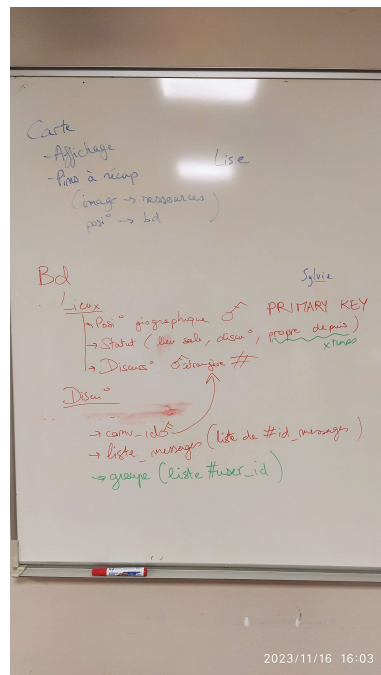 Carte
- Affichage
Lise
- Pins à récup
(image → ressources)
posi° → bd
Bd
Sylvie
Lieux
→ Posi° géographique PRIMARY KEY
→ Statut (lieu sale, discu°, propre depuis)
x temps
→ Discuss° étrangère #
Discu°
→ conv_id
→ liste_messages (liste de #id_messages)
→ groupe (liste #user_id)
2023/11/16 16:03